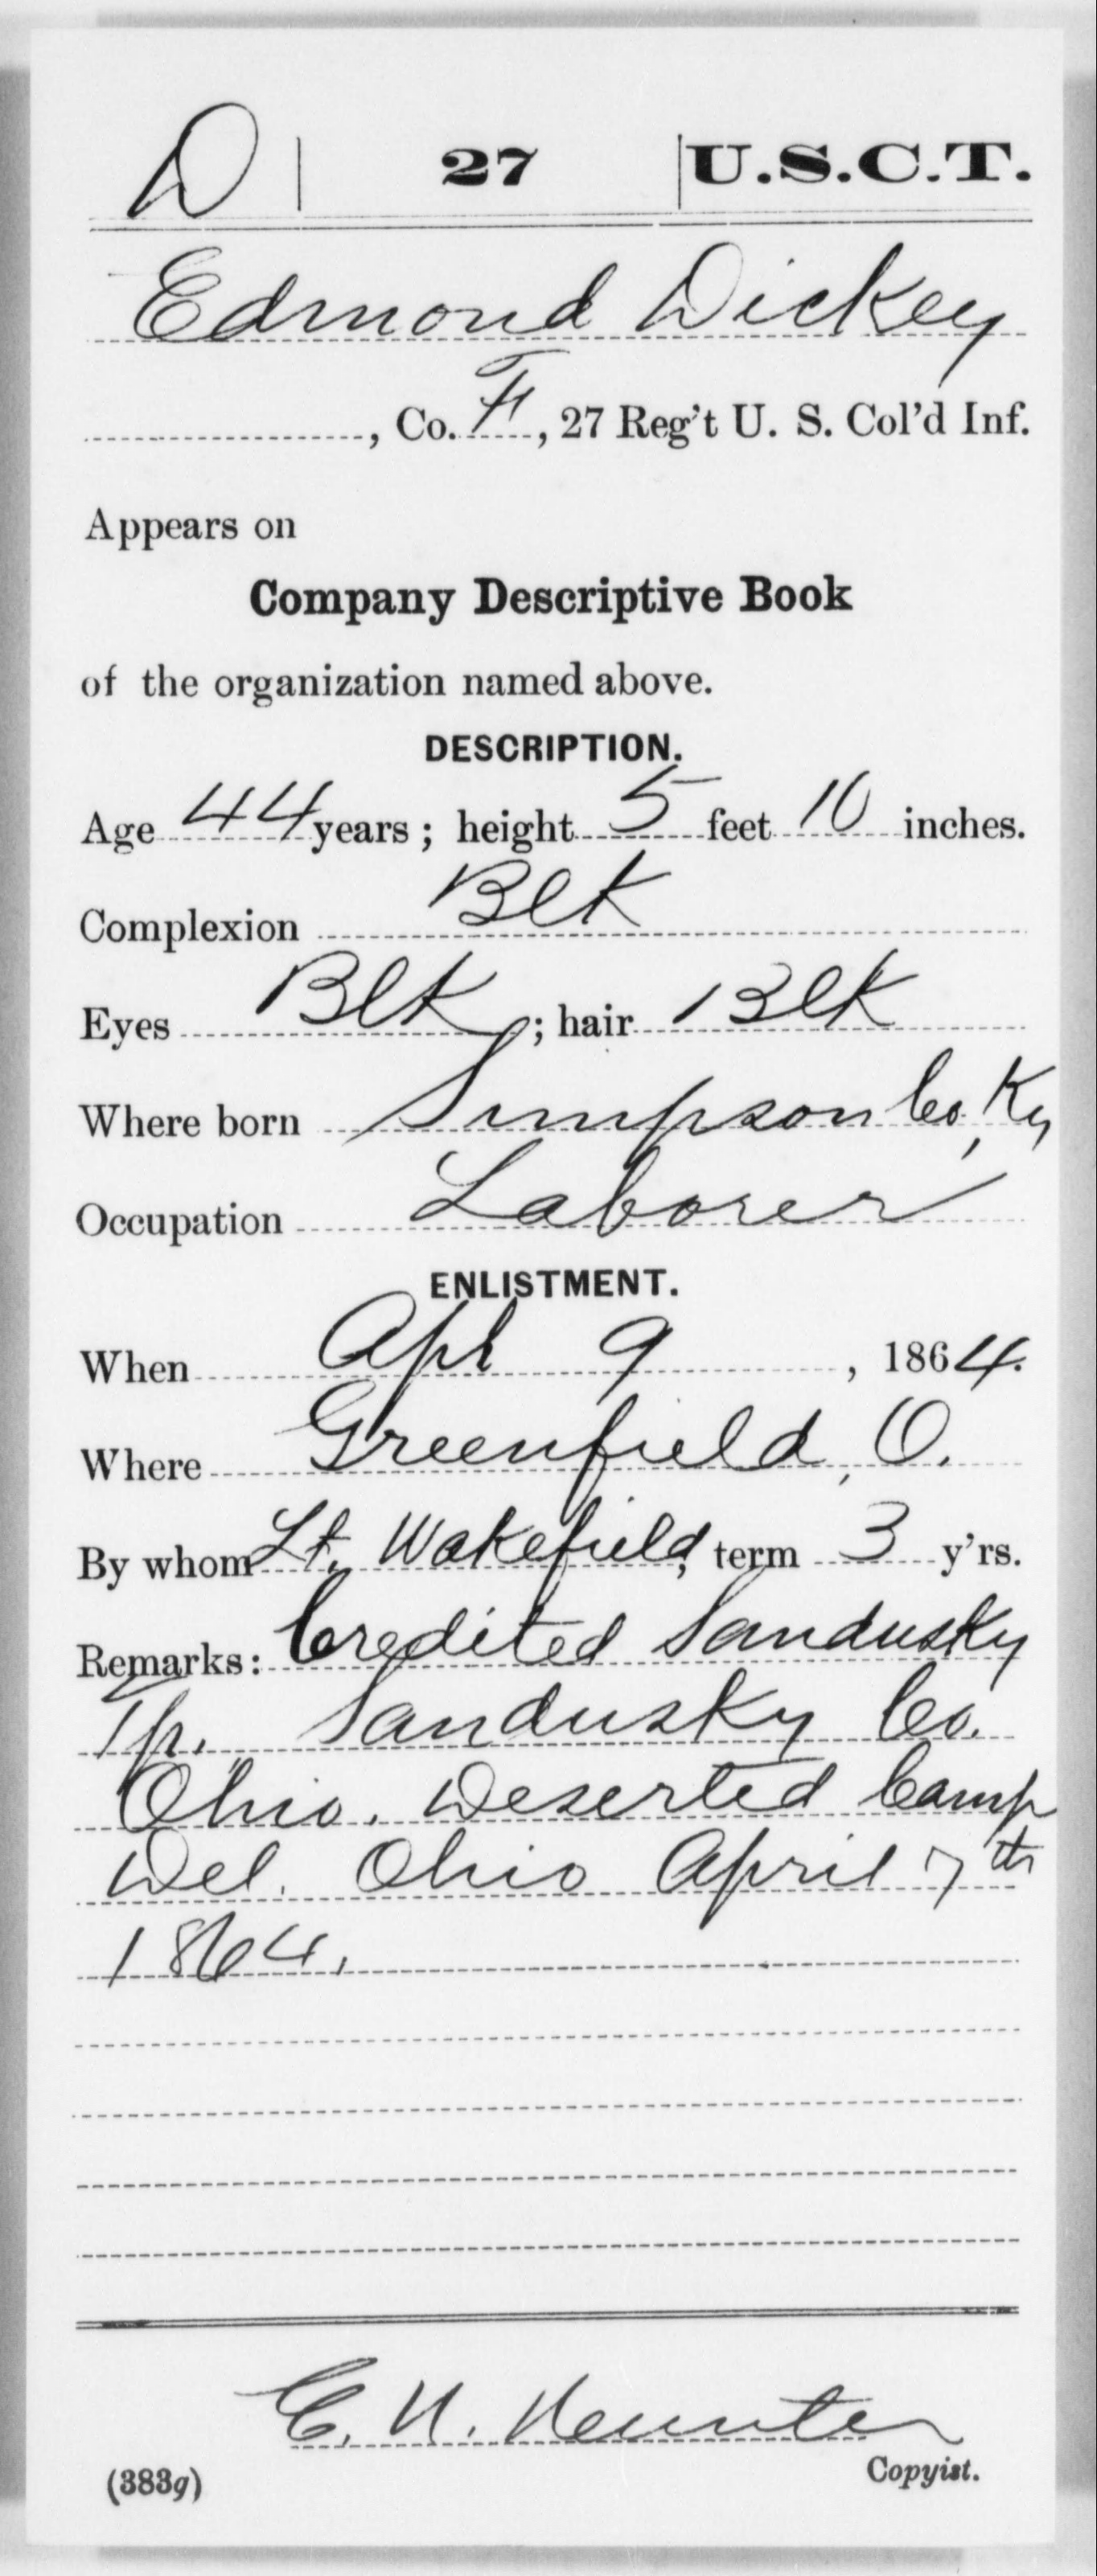 D | 27 | U.S.C.T.
Edmond Dickey
, Co. F, 27 Reg't U. S. Col'd Inf.
Appears on
Company Descriptive Book
of the organization named above.
DESCRIPTION.
Age 44 years; height 5 feet 10 inches.
Complexion Blk
Eyes Blk; hair Blk
Where born Simpson Co, Ky
Occupation Laborer
ENLISTMENT.
When Apl 9, 1864.
Where Greenfield, O.
By whom Lt. Wakefield; term 3 y'rs.
Remarks: Credited Sandusky
Tp. Sandusky Co.
Ohio. Deserted Camp
Del. Ohio April 7th
1864.
C. N.
(383g) Copyist.